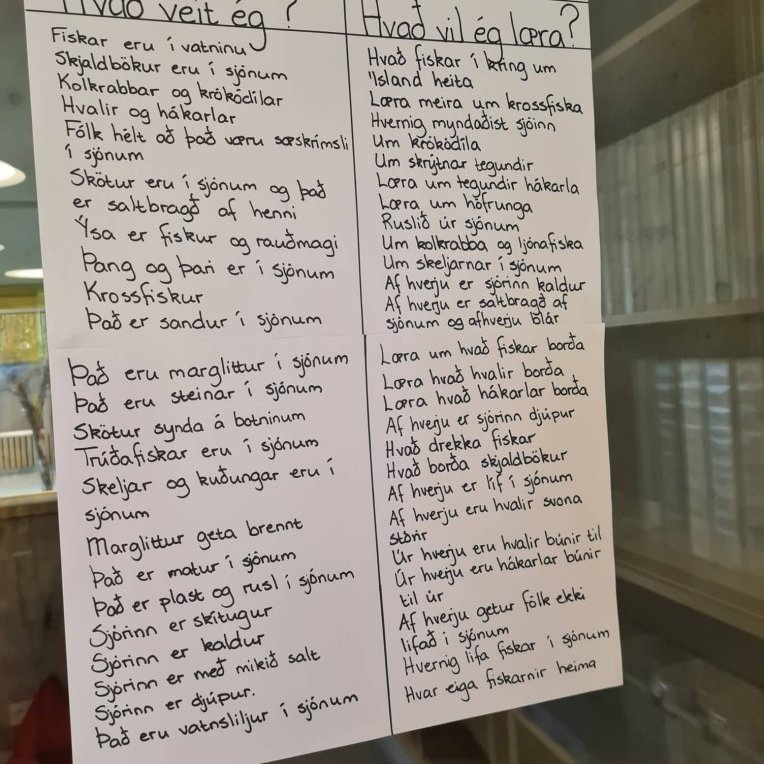 Hvað veit ég?
Fiskar eru í vatninu
Skjaldbökur eru í sjónum
Kolkrabbar og krókódílar
Hvalir og hákarlar
Fólk hélt að það væru sæskrímsli
í sjónum
Skötur eru í sjónum og það
er saltbragð af henni
Ýsa er fiskur og rauðmagi
Þang og þari er í sjónum
Krossfiskur
Það er sandur í sjónum
Það eru marglittur í sjónum
Það eru steinar í sjónum
Skötur synda á botninum
Trúðafiskar eru í sjónum
Skeljar og kuðungar eru í
sjónum
Marglittur geta brennt
Það er matur í sjónum
Það er plast og rusl í sjónum
Sjórinn er skítugur
Sjórinn er kaldur
Sjórinn er með mikið salt
Sjórinn er djúpur.
Það eru vatnsliljur í sjónum
Hvað vil ég læra?
Hvað fiskar í kring um
Ísland heita
Læra meira um krossfiska
Hvernig myndaðist sjóinn
Um krókódíla
Um skrýtnar tegundir
Læra um tegundir hákarla
Læra um höfrunga
Ruslið úr sjónum
Um kolkrabba og ljónafiska
Um skeljarnar í sjónum
Af hverju er sjórinn kaldur
Af hverju er saltbragð af
sjónum og afhverju blár
Læra um hvað fiskar borða
Læra hvað hvalir borða
Læra hvað hákarlar borða
Af hverju er sjórinn djúpur
Hvað drekka fiskar
Hvað borða skjaldbökur
Af hverju er líf í sjónum
Af hverju eru hvalir svona
stórir
Úr hverju eru hvalir búnir til
Úr hverju eru hákarlar búnir
til úr
Af hverju getur fólk ekki
lifað í sjónum
Hvernig lifa fiskar í sjónum
Hvar eiga fiskarnir heima